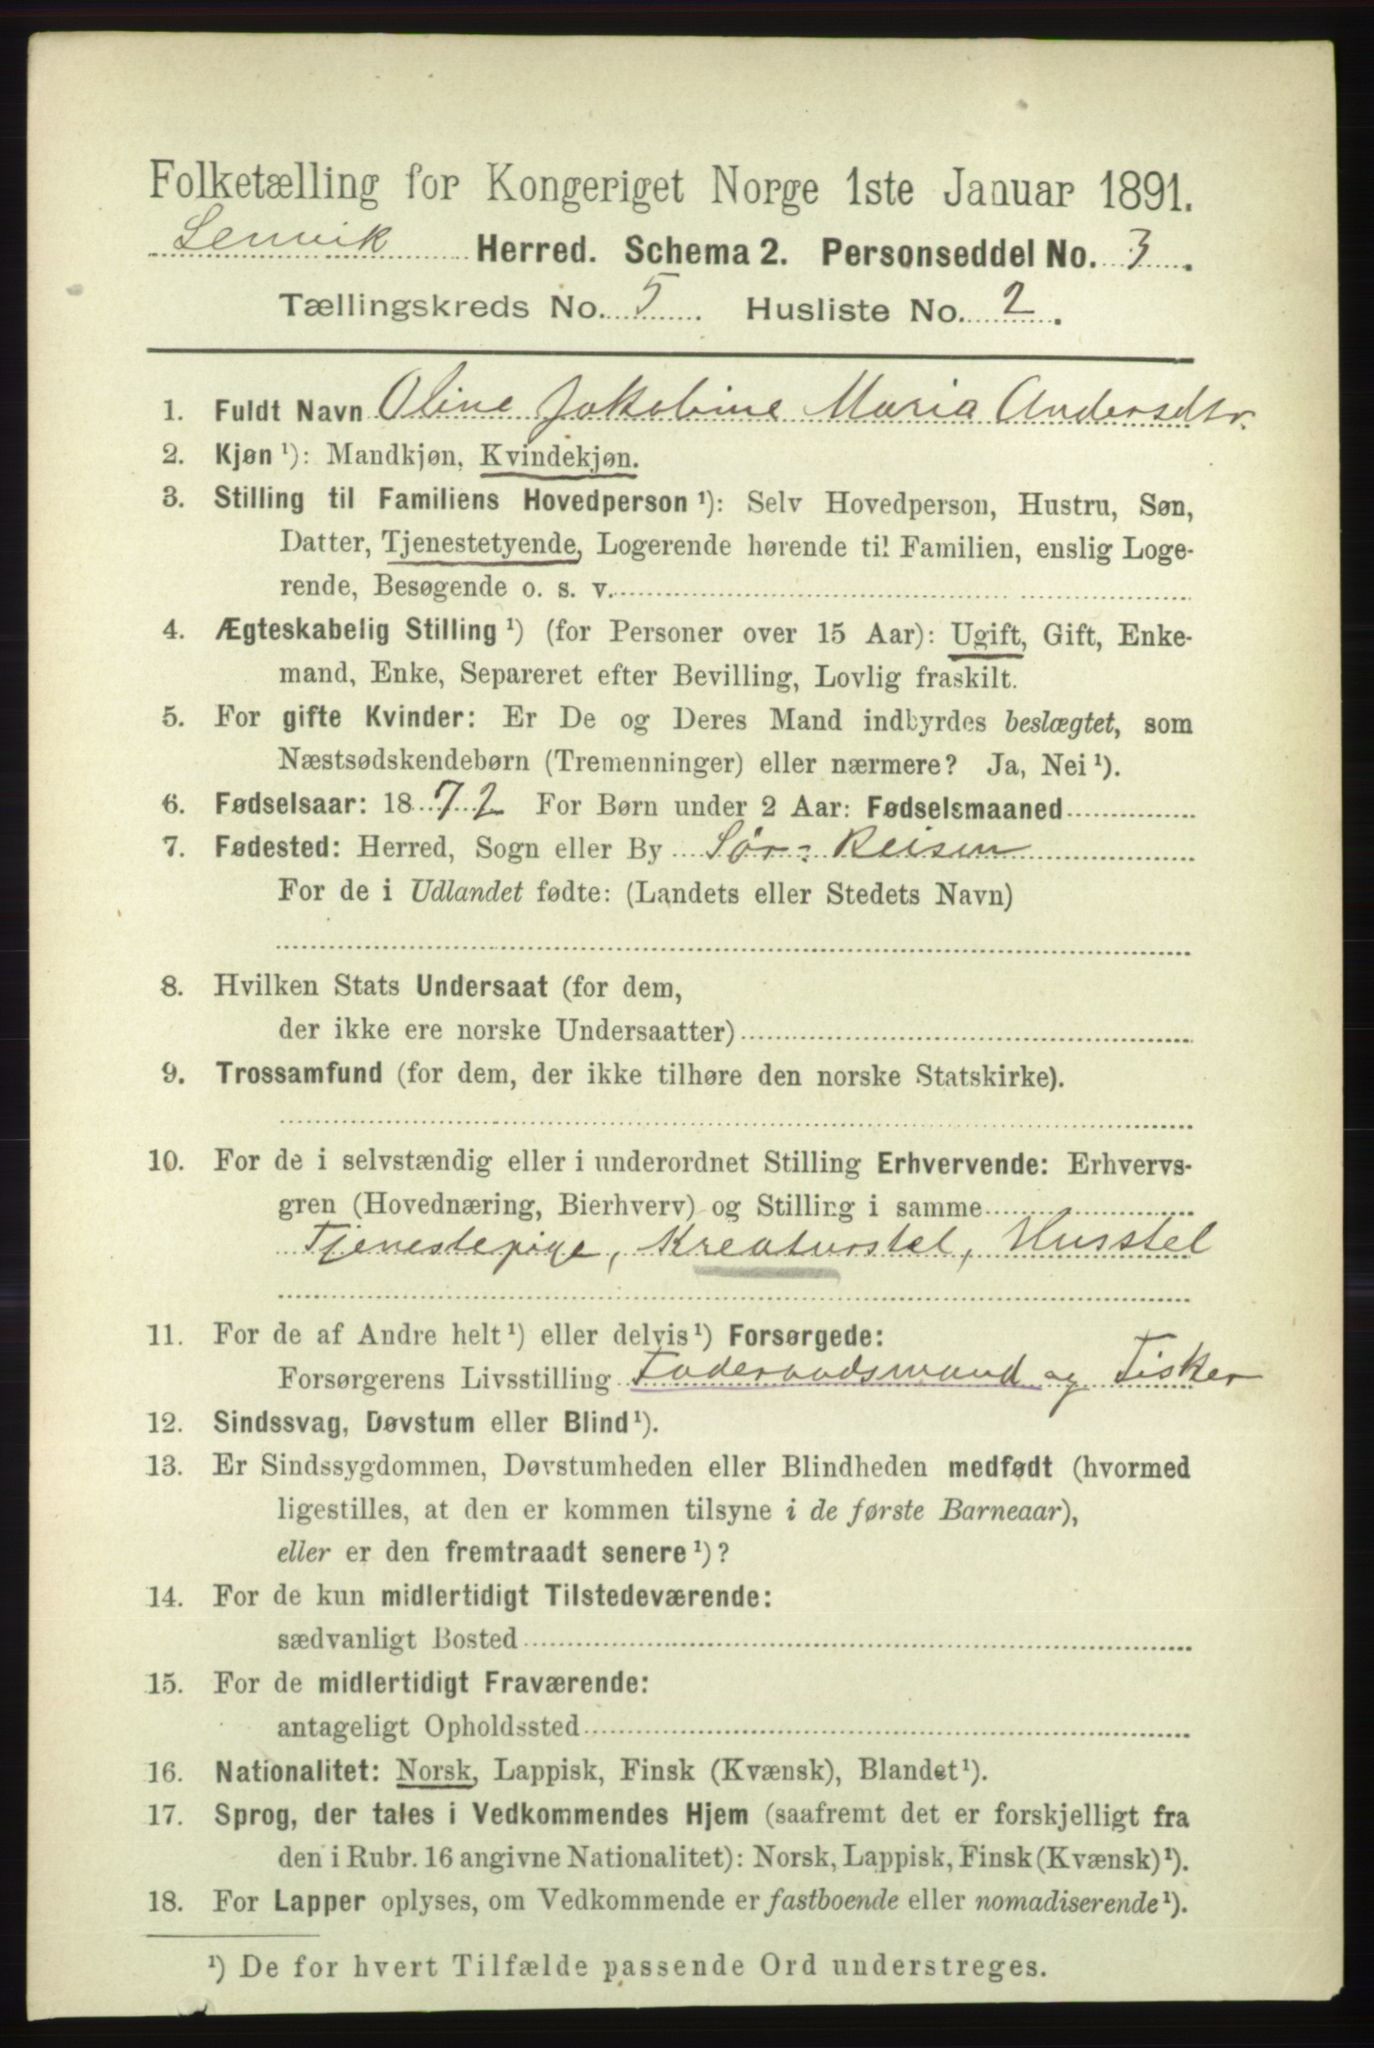 Folketælling for Kongeriget Norge 1ste Januar 1891.
Lenvik Herred. Schema 2. Personseddel No. 3.
Tællingskreds No. 5. Husliste No. 2.
1. Fuldt Navn Oline Jakobine Maria Andersdtr.
2. Kjøn ¹): Mandkjøn, Kvindekjøn.
3. Stilling til Familiens Hovedperson ¹): Selv Hovedperson, Hustru, Søn,
Datter, Tjenestetyende, Logerende hørende til Familien, enslig Loge-
rende, Besøgende o. s. v.
4. Ægteskabelig Stilling ¹) (for Personer over 15 Aar): Ugift, Gift, Enke-
mand, Enke, Separeret efter Bevilling, Lovlig fraskilt.
5. For gifte Kvinder: Er De og Deres Mand indbyrdes beslægtet, som
Næstsødskendebørn (Tremenninger) eller nærmere? Ja, Nei ¹).
6. Fødselsaar: 1872 For Børn under 2 Aar: Fødselsmaaned
7. Fødested: Herred, Sogn eller By Sør-Reisen
For de i Udlandet fødte: (Landets eller Stedets Navn)
8. Hvilken Stats Undersaat (for dem,
der ikke ere norske Undersaatter)
9. Trossamfund (for dem, der ikke tilhøre den norske Statskirke).
10. For de i selvstændig eller i underordnet Stilling Erhvervende: Erhvervs-
gren (Hovednæring, Bierhverv) og Stilling i samme
Tjenestepige, Kreaturstel, Husstel
11. For de af Andre helt ¹) eller delvis ¹) Forsørgede:
Forsørgerens Livsstilling Føderaadsmand og Fisker
12. Sindssvag, Døvstum eller Blind ¹).
13. Er Sindssygdommen, Døvstumheden eller Blindheden medfødt (hvormed
ligestilles, at den er kommen tilsyne i de første Barneaar),
eller er den fremtraadt senere ¹)?
14. For de kun midlertidigt Tilstedeværende:
sædvanligt Bosted
15. For de midlertidigt Fraværende:
antageligt Opholdssted
16. Nationalitet: Norsk, Lappisk, Finsk (Kvænsk), Blandet ¹).
17. Sprog, der tales i Vedkommendes Hjem (saafremt det er forskjelligt fra
den i Rubr. 16 angivne Nationalitet): Norsk, Lappisk, Finsk (Kvænsk) ¹).
18. For Lapper oplyses, om Vedkommende er fastboende eller nomadiserende ¹).
¹) De for hvert Tilfælde passende Ord understreges.